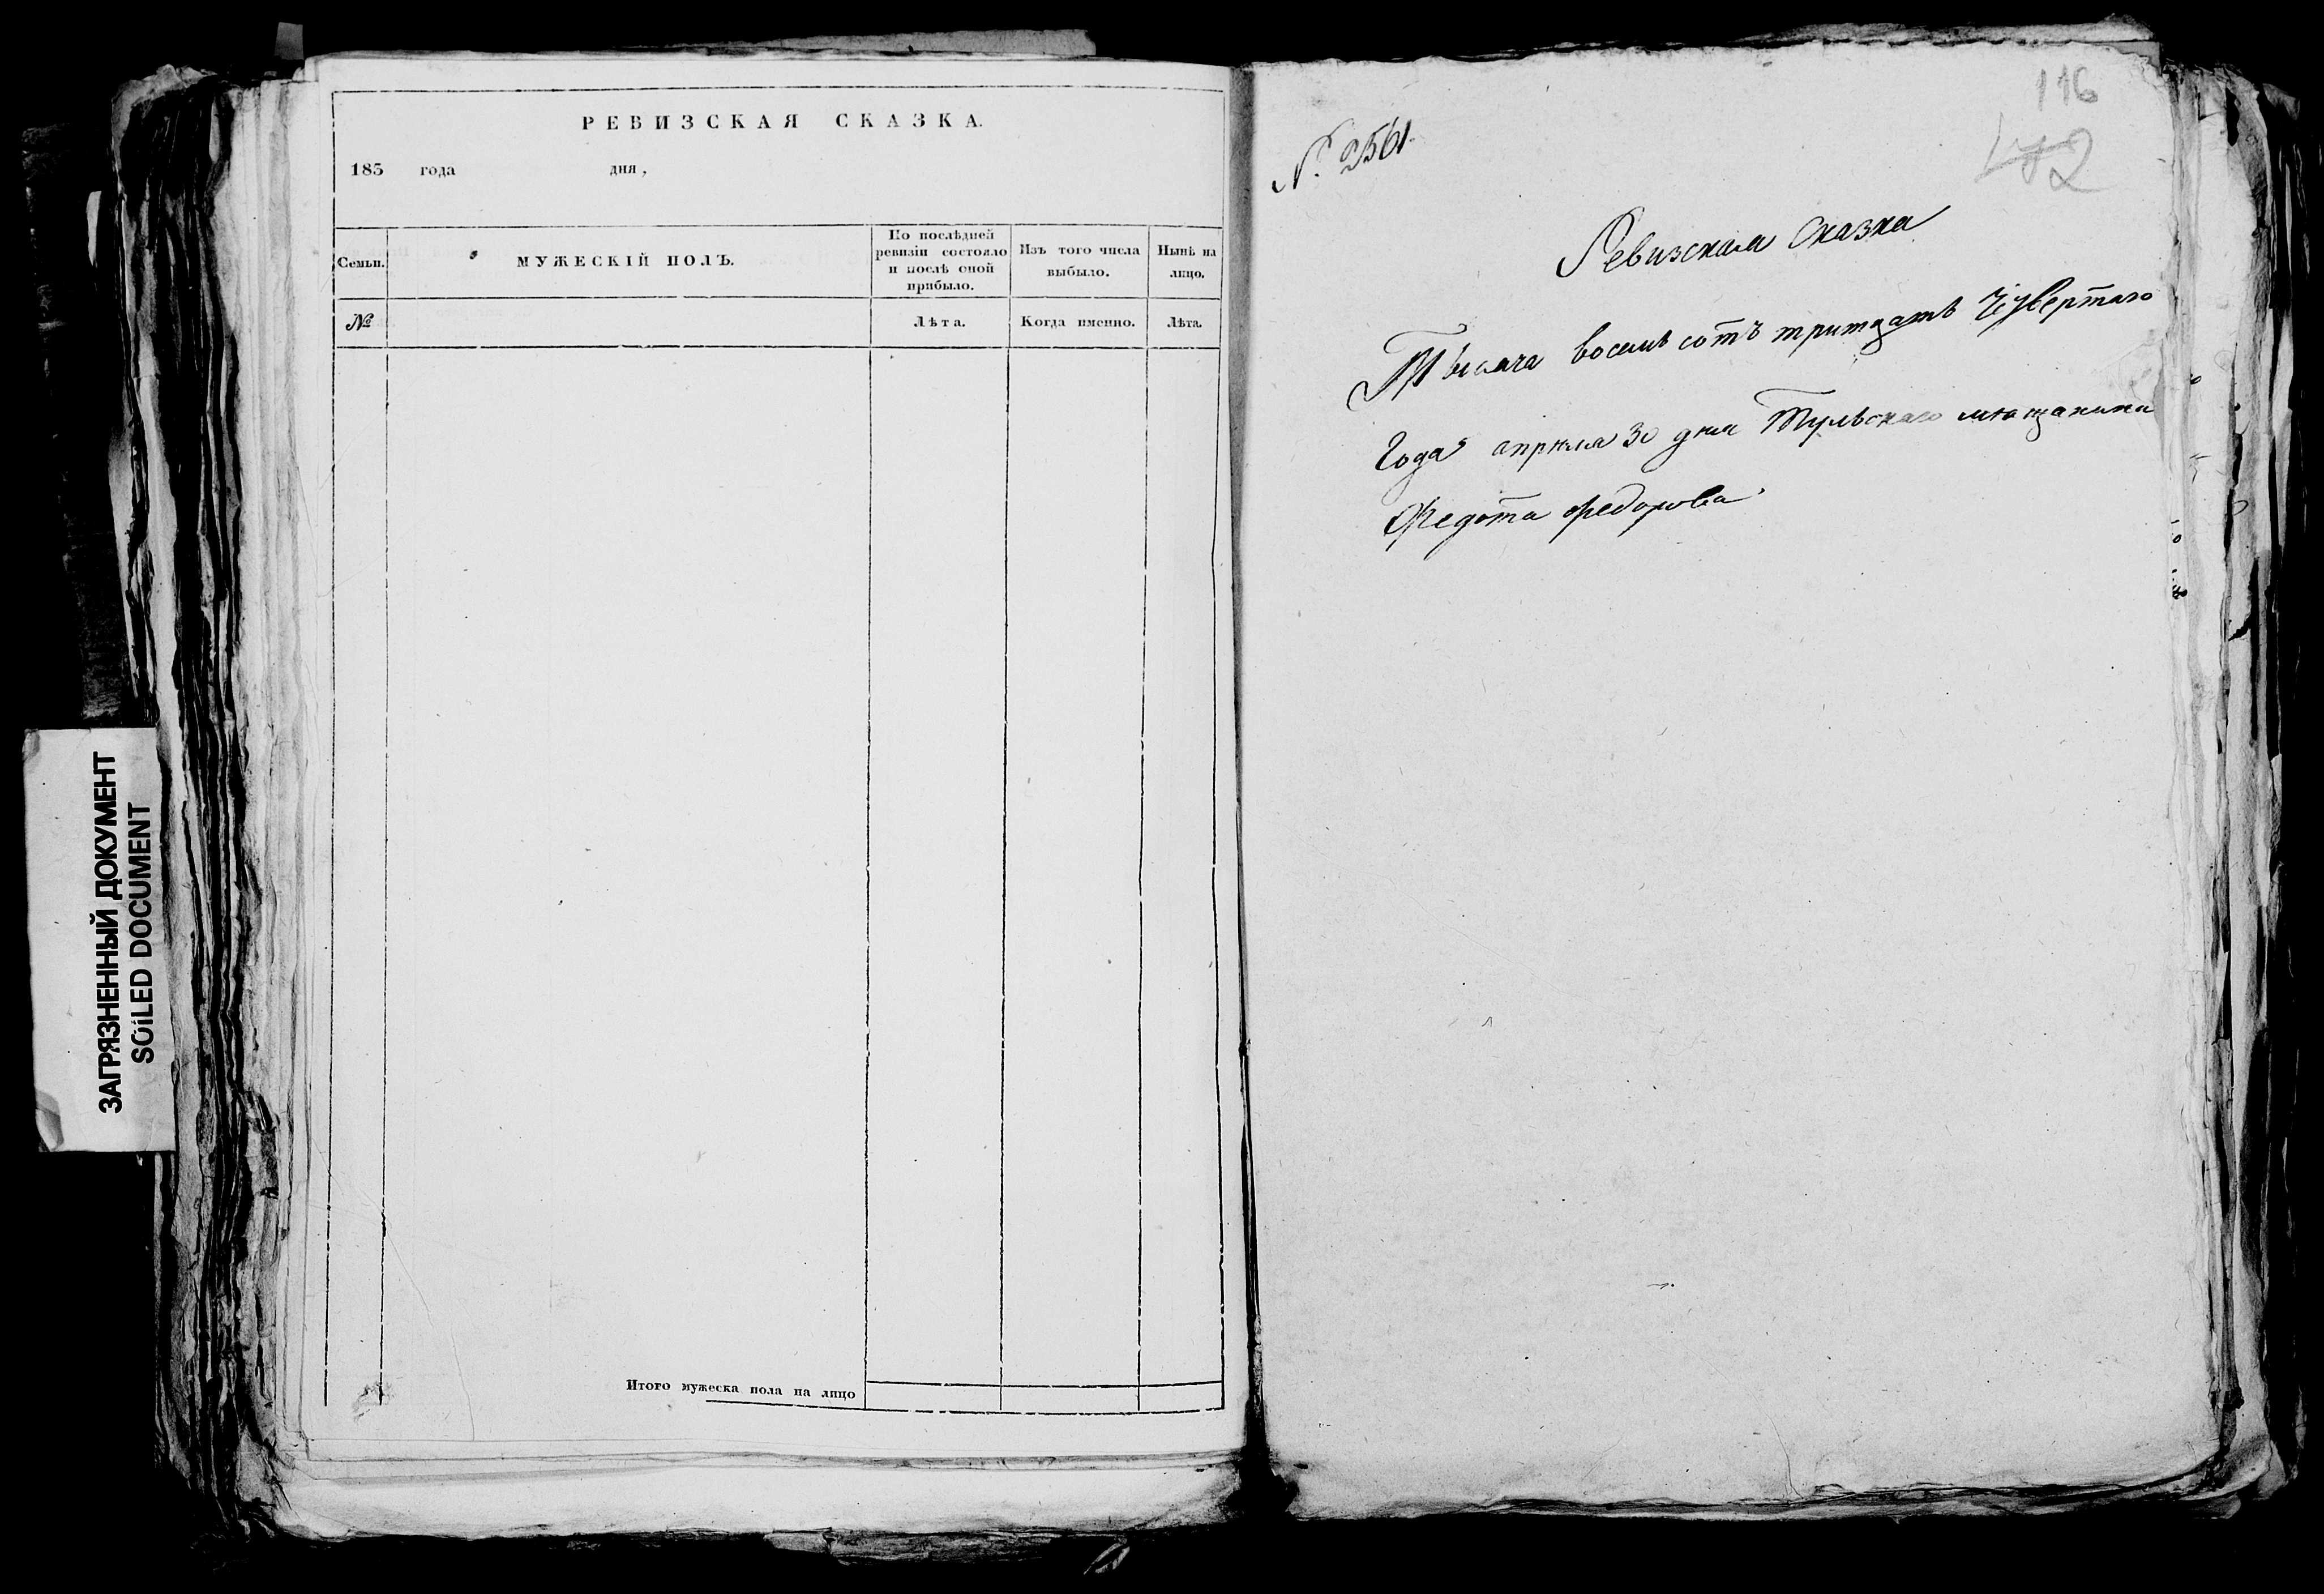 РЕВИЗСКАЯ СКАЗКА.
185 года дня,
Семьи.
МУЖЕСКІЙ ПОЛЪ.
По послѣдней
ревизіи состояло
и послѣ оной
прибыло.
Изъ того числа
выбыло.
Нынѣ на
лицо.
№
Лѣта.
Когда именно.
Лѣта.
Итого мужеска пола на лицо
ЗАГРЯЗНЕННЫЙ ДОКУМЕНТ
SOILED DOCUMENT
116
№. 2561
Ревизская Сказка
Тысяча восемь сотъ тритцать Четвертаго
Года апреля 30 дня Тульскаго мещанина
Федота Федорова